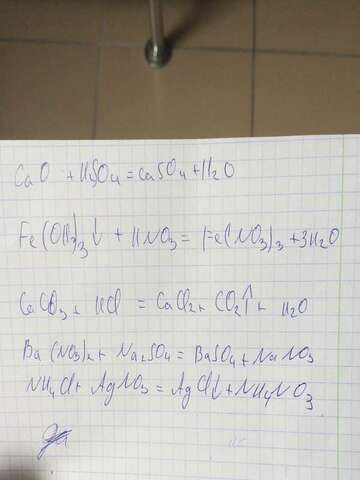 CaO + H2SO4 = CaSO4 + H2O
Fe(OH)3↓ + HNO3 = Fe(NO3)3 + 3H2O
CaCO3 + HCl = CaCl2 + CO2↑ + H2O
Ba(NO3)2 + Na2SO4 = BaSO4 + NaNO3
NH4Cl + AgNO3 = AgCl↓ + NH4NO3